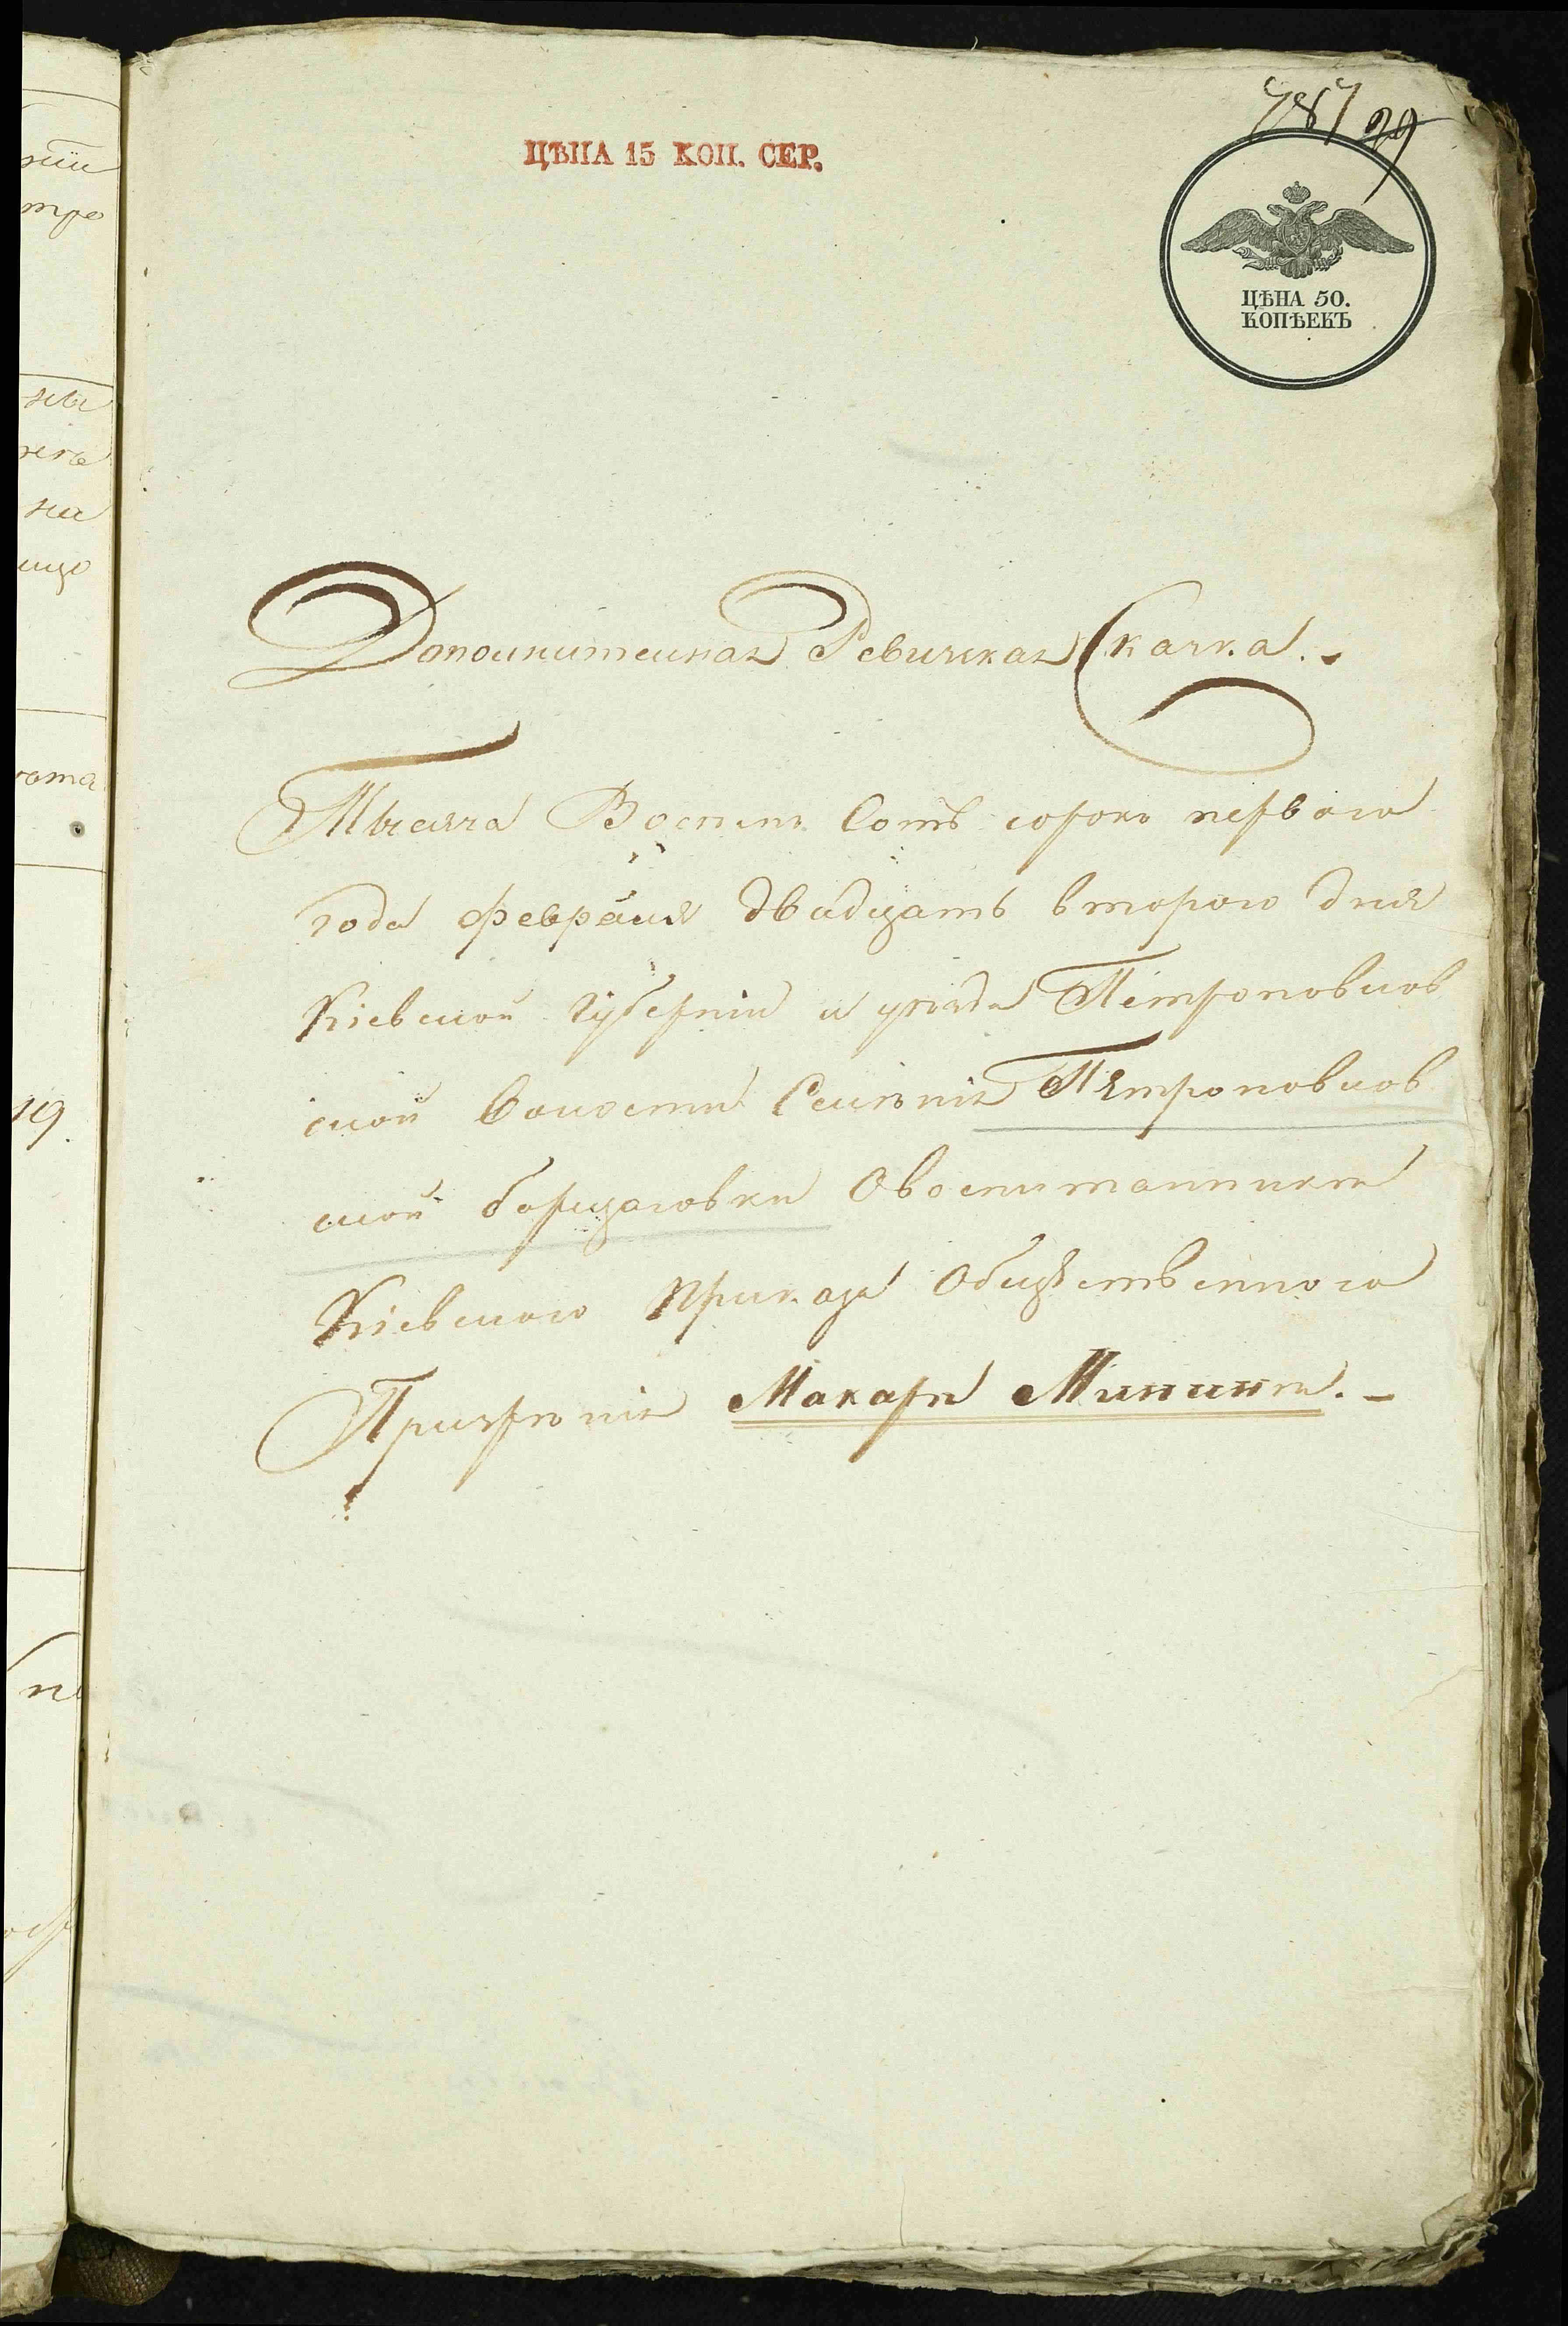 787 99
ЦѢНА 15 КОП. СЕР.
ЦѢНА 50.
КОПѢЕКЪ
Дополнителная Ревизская Сказка.
Тысяча Восемь Сотъ сорокъ первого
года февраля двадцать второго дня
Кіевской губерніи и уезда Петроповлов
ской волости Селѣнія Петроповлов
ской борщаговки Овоспитанникѣ
Кіевского Приказа Общественного
Призрѣнія Макарѣ Мининѣ.